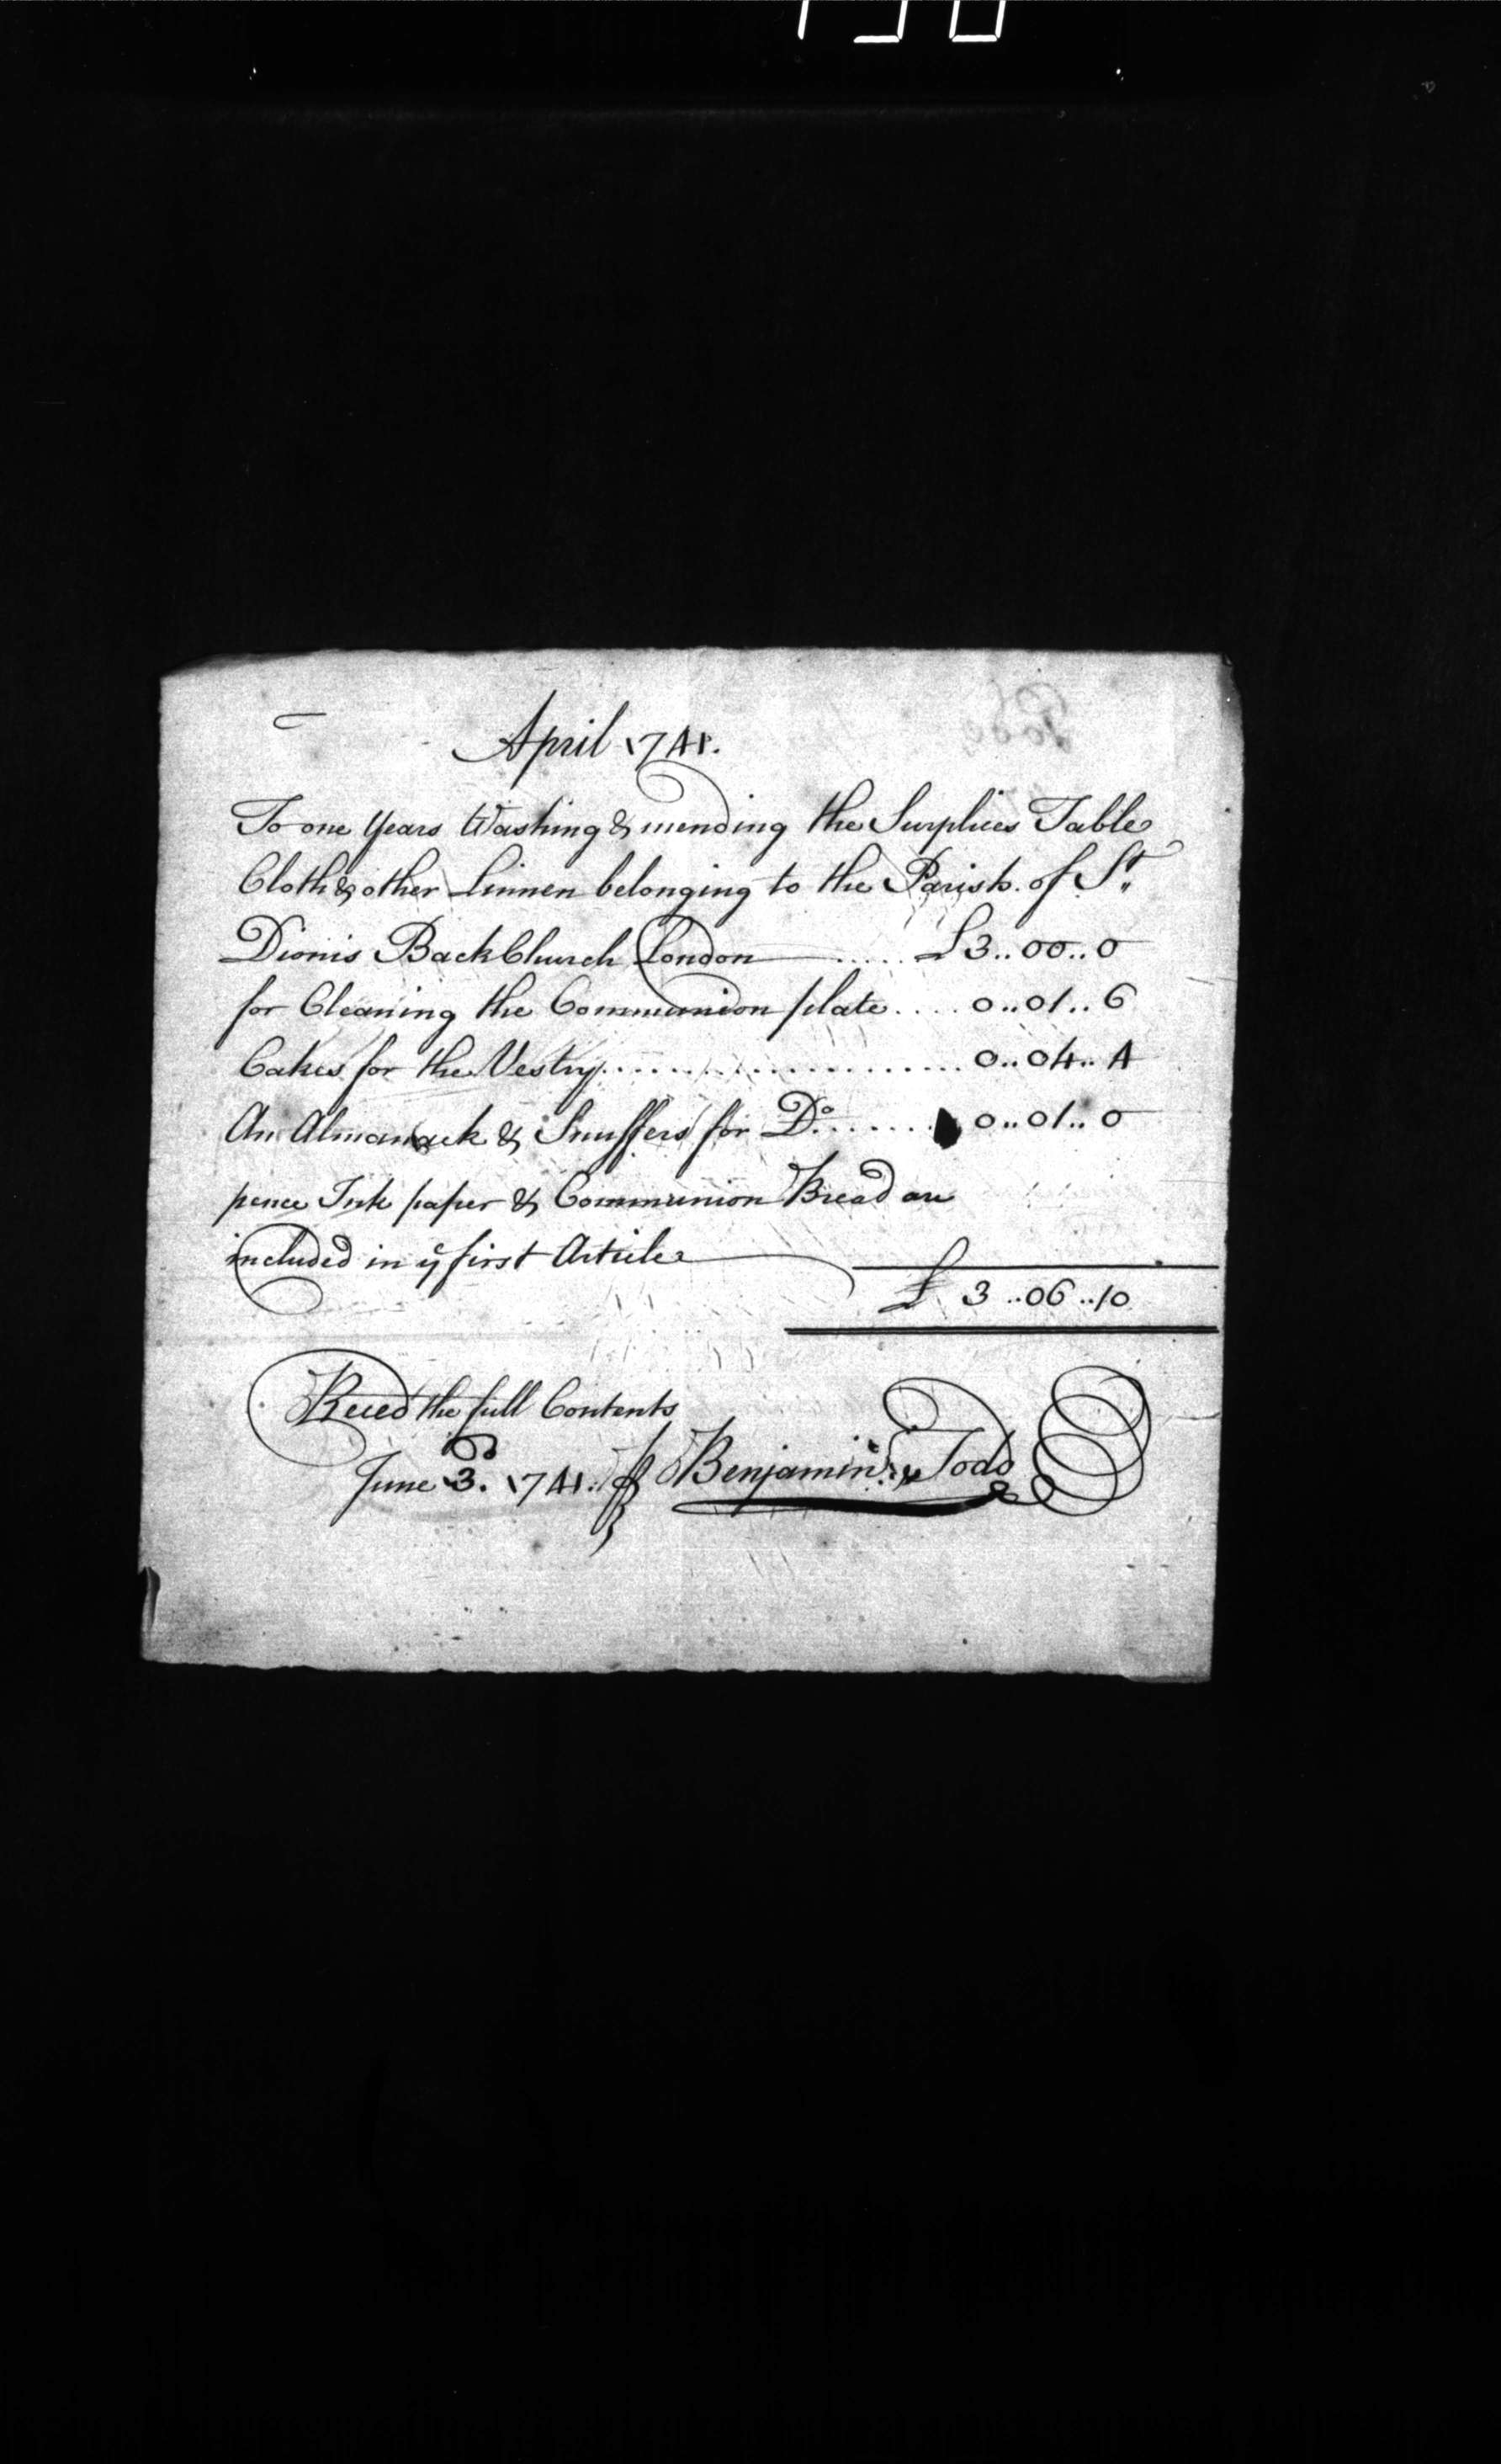 April 1741.
To one Years Washing & mending the Surplices Table
Cloth & other Linnen belonging to the Parish of St.
Dionis BackChurch London ..... £3..00..0
for Cleaning the Communion plate.... 0..01..6
Cakes for the Vestry..................... 0..04..4
An Almanack & Snuffers for Do....... 0..01..0
pence Ink paper & Communion Bread are
included in ye first Article
£ 3..06..10
Reced the full Contents
June 3d. 1741. Benjamin Todd